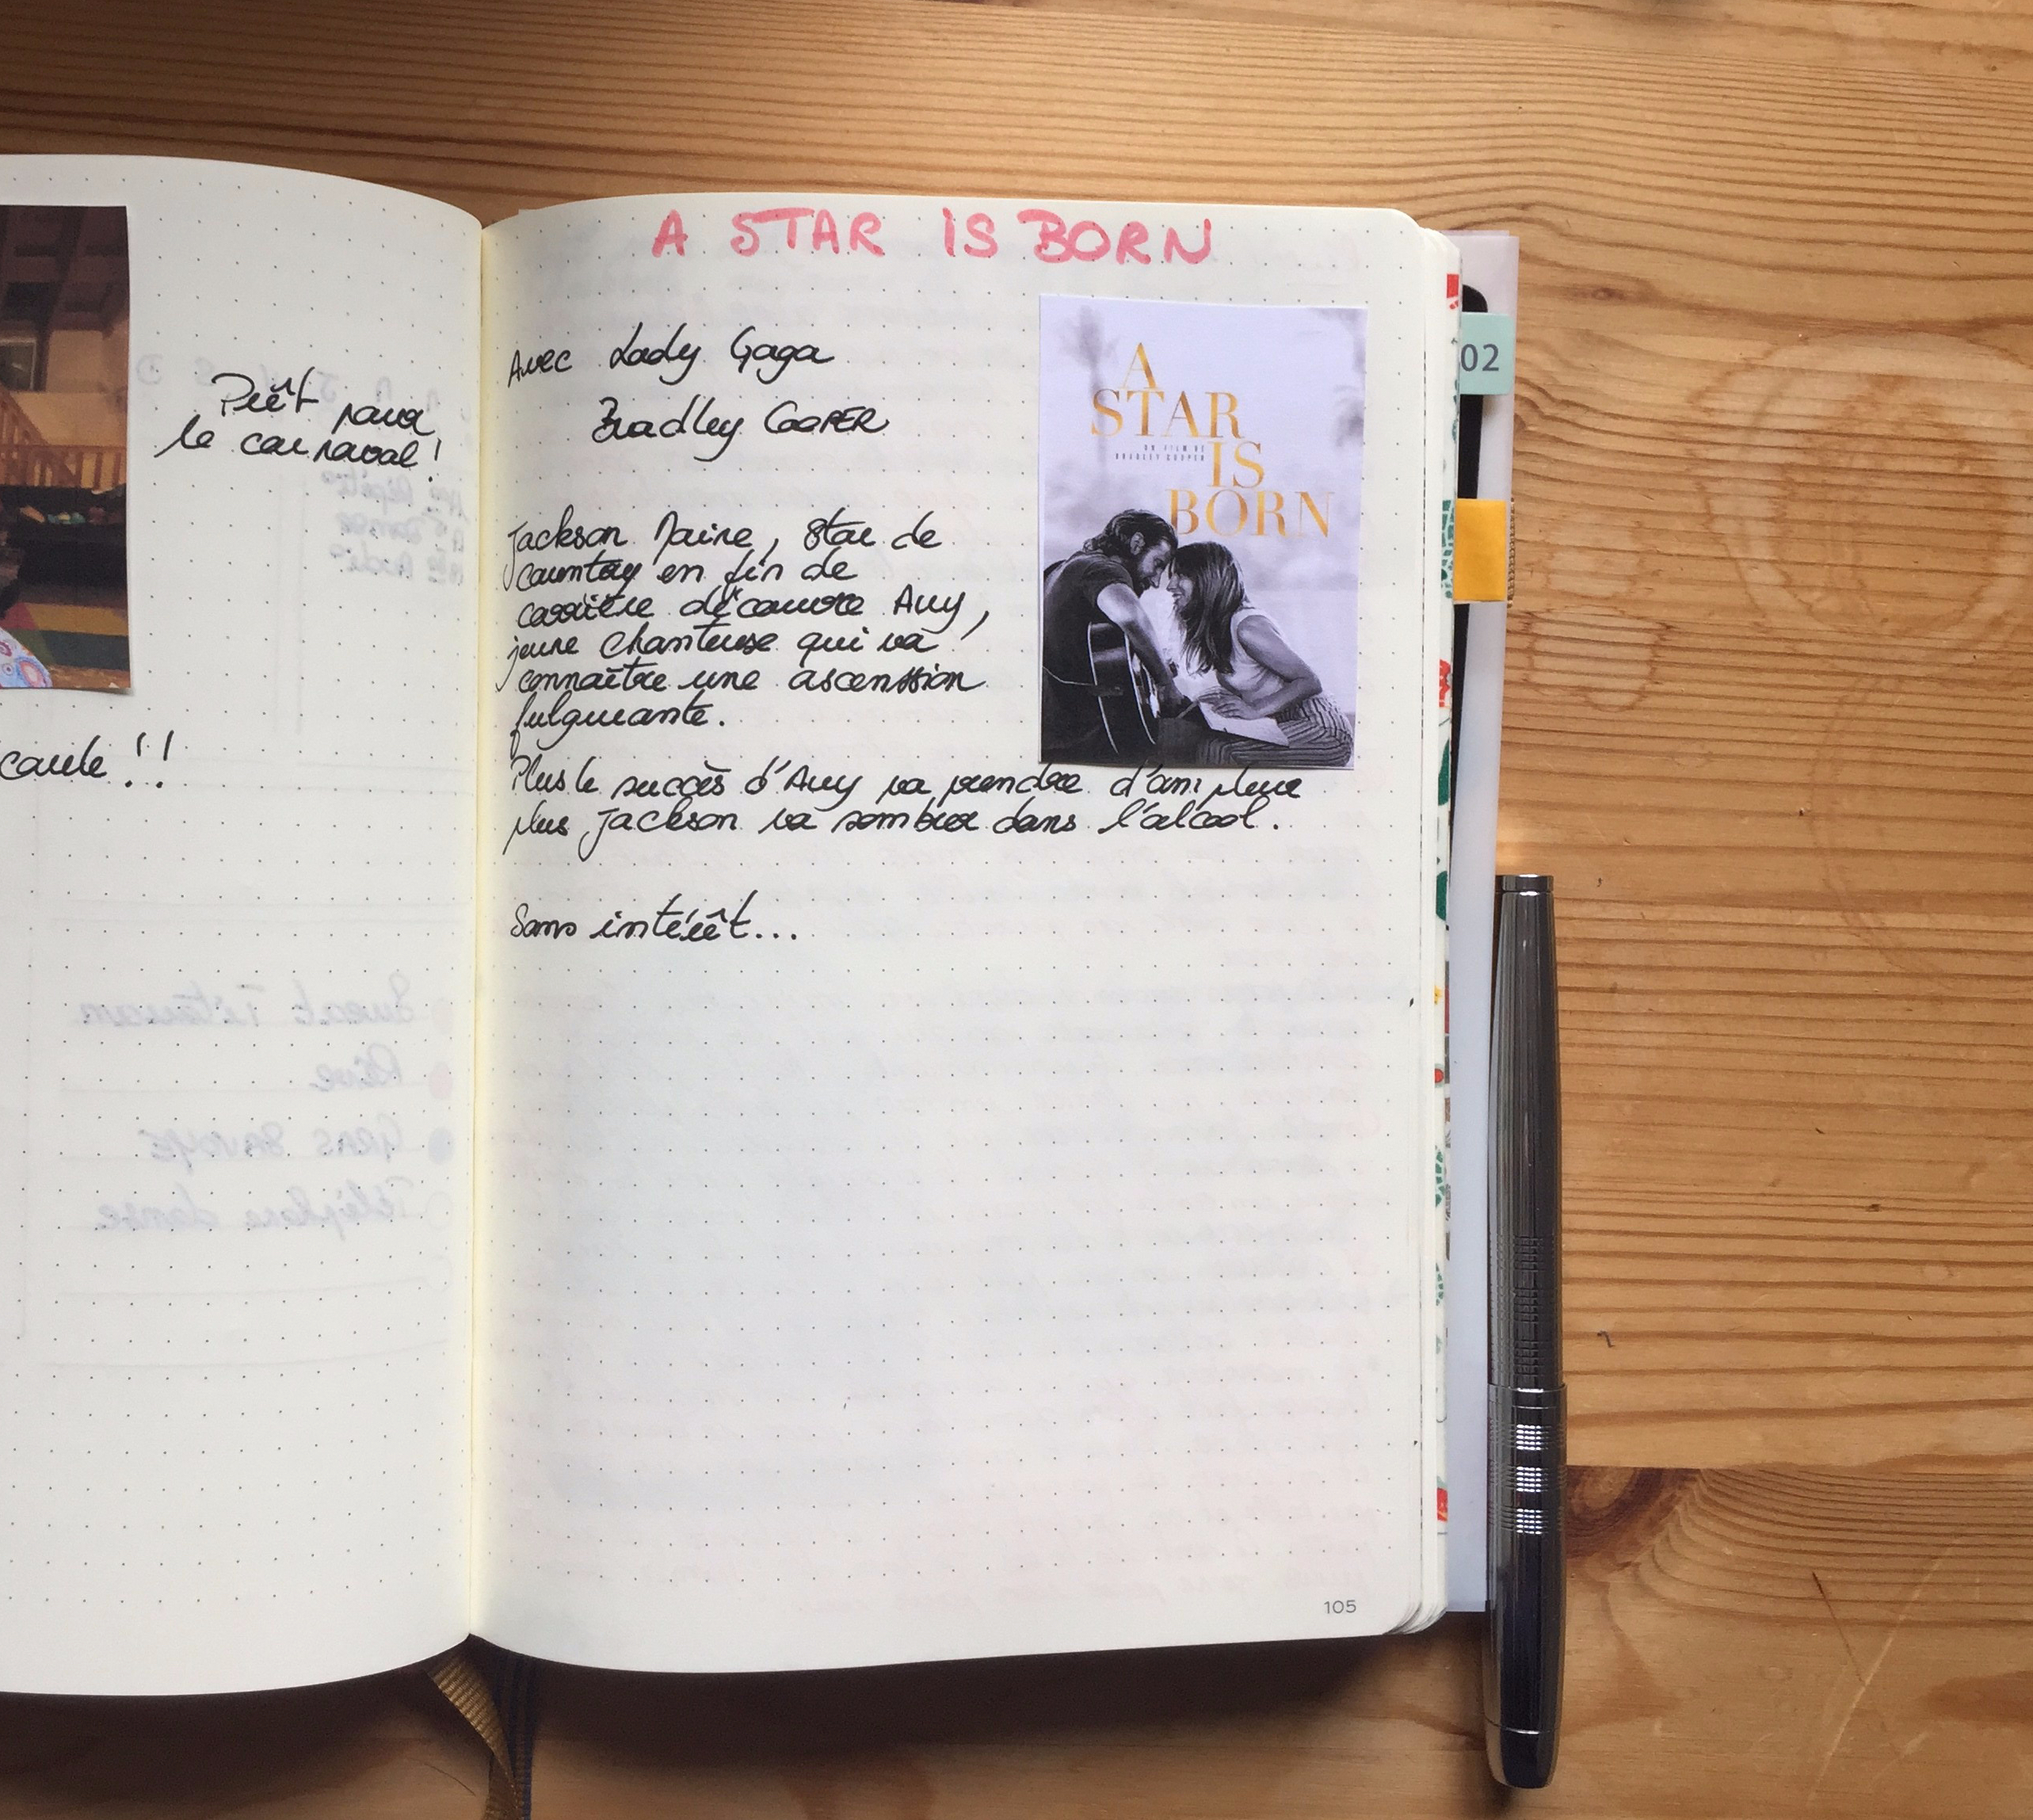 Prêt pour
le carnaval!
!!
A STAR IS BORN
Avec Lady Gaga
Bradley COOPER
A
STAR
UN FILM DE
BRADLEY COOPER
IS
BORN
Jackson Maine, star de
country en fin de
carrière découvre Ally,
jeune chanteuse qui va
connaître une ascenssion
fulgurante.
Plus le succès d'Ally va prendre d'ampleur
plus Jackson va sombrer dans l'alcool.
Sans intérêt...
02
105